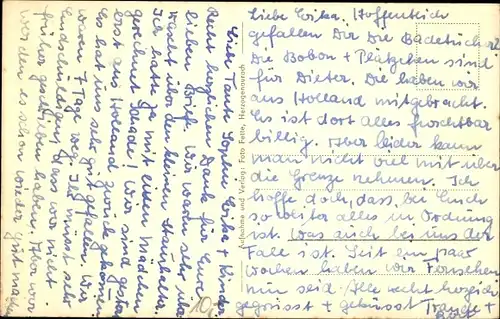 Liebe Tante Sophie, Erika + Kinder
Recht herzlichen Dank für Eure
lieben Brief. Wir waren sehr
über den kleinen Stammhalter.
Ich hatte ja mit einem Mädchen
gerechnet. Schade! Wir sind gestern
erst aus Holland zurückgekommen.
Es hat uns sehr gut gefallen. Wir
waren 7 Tage weg. Ihr müsst sehr
entschuldigen, dass wir nicht
früher geschrieben haben. Aber wir
werden es schon wieder gut machen
Aufnahme und Verlag: Foto Fette, Herzogenaurach
Liebe Erika. Hoffentlich
gefallen Dir die Badetücher.
Die Bobon + Plätzchen sind
für Dieter. Die haben wir
aus Holland mitgebracht.
Es ist dort alles furchtbar
billig. Aber leider kann
man nicht viel mit über
die Grenze nehmen. Ich
hoffe doch, dass, bei Euch
so weiter alles in Ordnung
ist. Was auch bei uns der
Fall ist. Seit ein paar
Wochen haben wir Fernsehen
Nun seid Alle recht herzlich
gegrüsst + geküsst